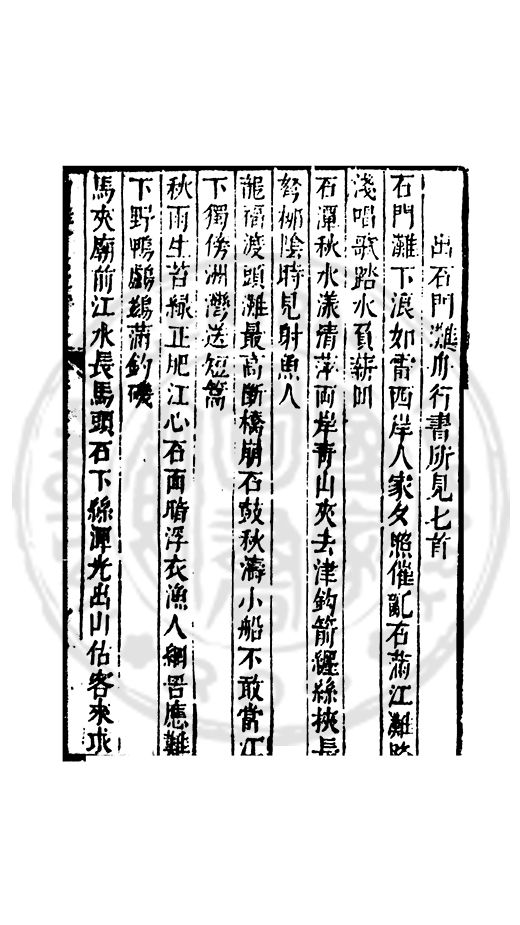 出石門灘舟行書所見七首
石門灘下浪如雷西岸人家夕照催亂石滿江灘
淺唱歌踏水負薪回
石潭秋水漾清萍兩岸青山夾去津鈎箭纏絲挾長
弩柳陰時見射魚人
龍福渡頭灘最高斷橋崩石鼓秋濤小船不敢當江
下獨傍洲灣送短篙
秋雨生苔綠正肥江心石面暗浮衣漁人網罟應難
下野鴨鸕鷀滿釣磯
馬夾廟前江水長馬頭石下綠潭光出山估客來求